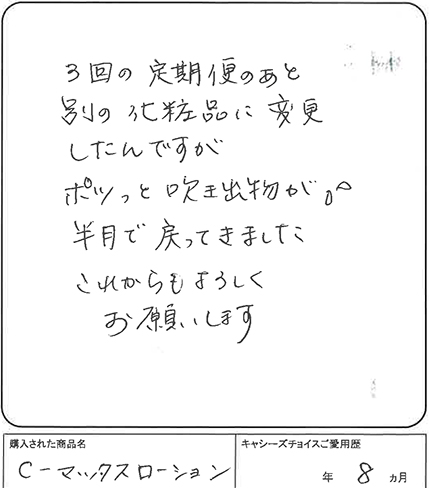 3回の定期便のあと
別の化粧品に変更
したんですが
ポツっと吹き出物が
半月で戻ってきました
これからもよろしく
お願いします
購入された商品名
キャシーズチョイスご愛用歴
C-マックスローション
年 8 ヵ月